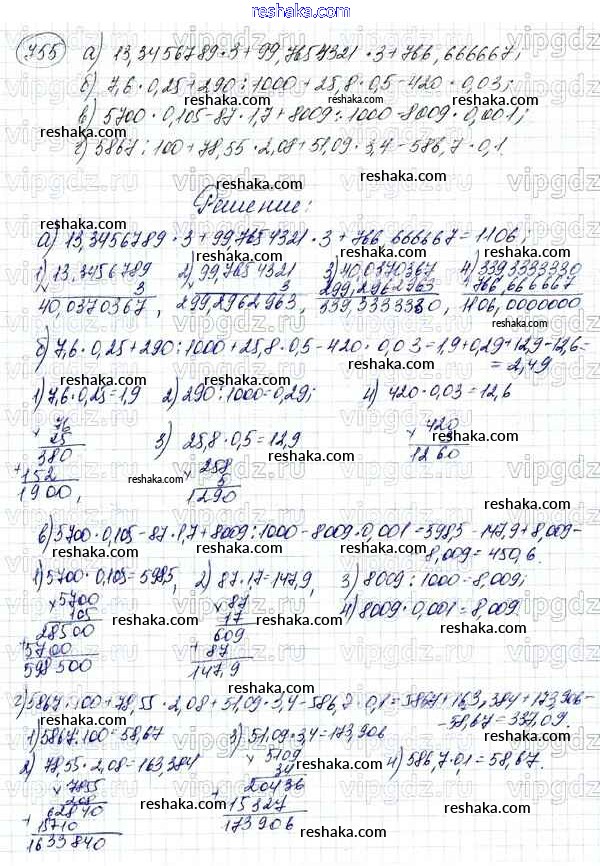 reshaka.com
755 а) 13,3456789·3+99,7654321·3+766,666667;
б) 7,6·0,25+290:1000+25,8·0,5-420·0,03;
в) 5700·0,105-87·1,7+8009:1000-8009·0,001;
г) 5867:100+78,55·2,08+51,09·3,4-586,7·0,1.
Решение:
а) 13,3456789·3+99,7654321·3+766,666667=1106;
1) 13,3456789 2) 99,7654321 3) 40,0370367 4) 339,3333330
× 3 × 3 299,2962963 766,666667
40,0370367, 299,2962963, 339,3333330, 1106,0000000
б) 7,6·0,25+290:1000+25,8·0,5-420·0,03=1,9+0,29+12,9-12,6=
=2,49
1) 7,6·0,25=1,9 2) 290:1000=0,29; 4) 420·0,03=12,6
×76 3) 25,8·0,5=12,9 ×420
25 ×258 3
380 5 1260
+152 1290
1900,
в) 5700·0,105-87·1,7+8009:1000-8009·0,001=598,5-147,9+8,009-
-8,009=450,6.
1) 5700·0,105=598,5, 2) 87·1,7=147,9, 3) 8009:1000=8,009;
×5700 ×87 4) 8009·0,001=8,009
105 17
28500 609
+5700 +87
598500 147,9
г) 5867:100+78,55·2,08+51,09·3,4-586,7·0,1=58,67+163,384+173,906-
-58,67=337,09.
1) 5867:100=58,67 3) 51,09·3,4=173,906
2) 78,55·2,08=163,384 ×5109 4) 586,7·0,1=58,67.
×7855 34
208 20436
62840 +15327
+15710 173906
1633840